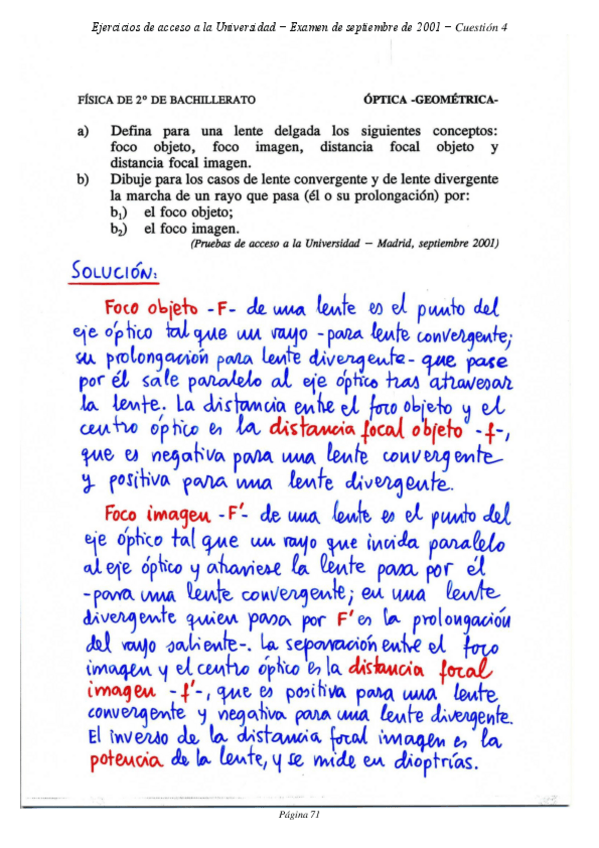 Ejercicios de acceso a la Universidad − Examen de septiembre de 2001 − Cuestión 4
FÍSICA DE 2º DE BACHILLERATO ÓPTICA -GEOMÉTRICA-
a) Defina para una lente delgada los siguientes conceptos:
foco objeto, foco imagen, distancia focal objeto y
distancia focal imagen.
b) Dibuje para los casos de lente convergente y de lente divergente
la marcha de un rayo que pasa (él o su prolongación) por:
b₁) el foco objeto;
b₂) el foco imagen.
(Pruebas de acceso a la Universidad − Madrid, septiembre 2001)
SOLUCIÓN:
Foco objeto -F- de una lente es el punto del
eje óptico tal que un rayo -para lente convergente;
su prolongación para lente divergente- que pase
por él sale paralelo al eje óptico tras atravesar
la lente. La distancia entre el foco objeto y el
centro óptico es la distancia focal objeto -f-,
que es negativa para una lente convergente
y positiva para una lente divergente.
Foco imagen -F'- de una lente es el punto del
eje óptico tal que un rayo que incida paralelo
al eje óptico y atraviese la lente pasa por él
-para una lente convergente; en una lente
divergente quien pasa por F' es la prolongación
del rayo saliente-. La separación entre el foco
imagen y el centro óptico es la distancia focal
imagen -f'-, que es positiva para una lente
convergente y negativa para una lente divergente.
El inverso de la distancia focal imagen es la
potencia de la lente, y se mide en dioptrías.
Página 71